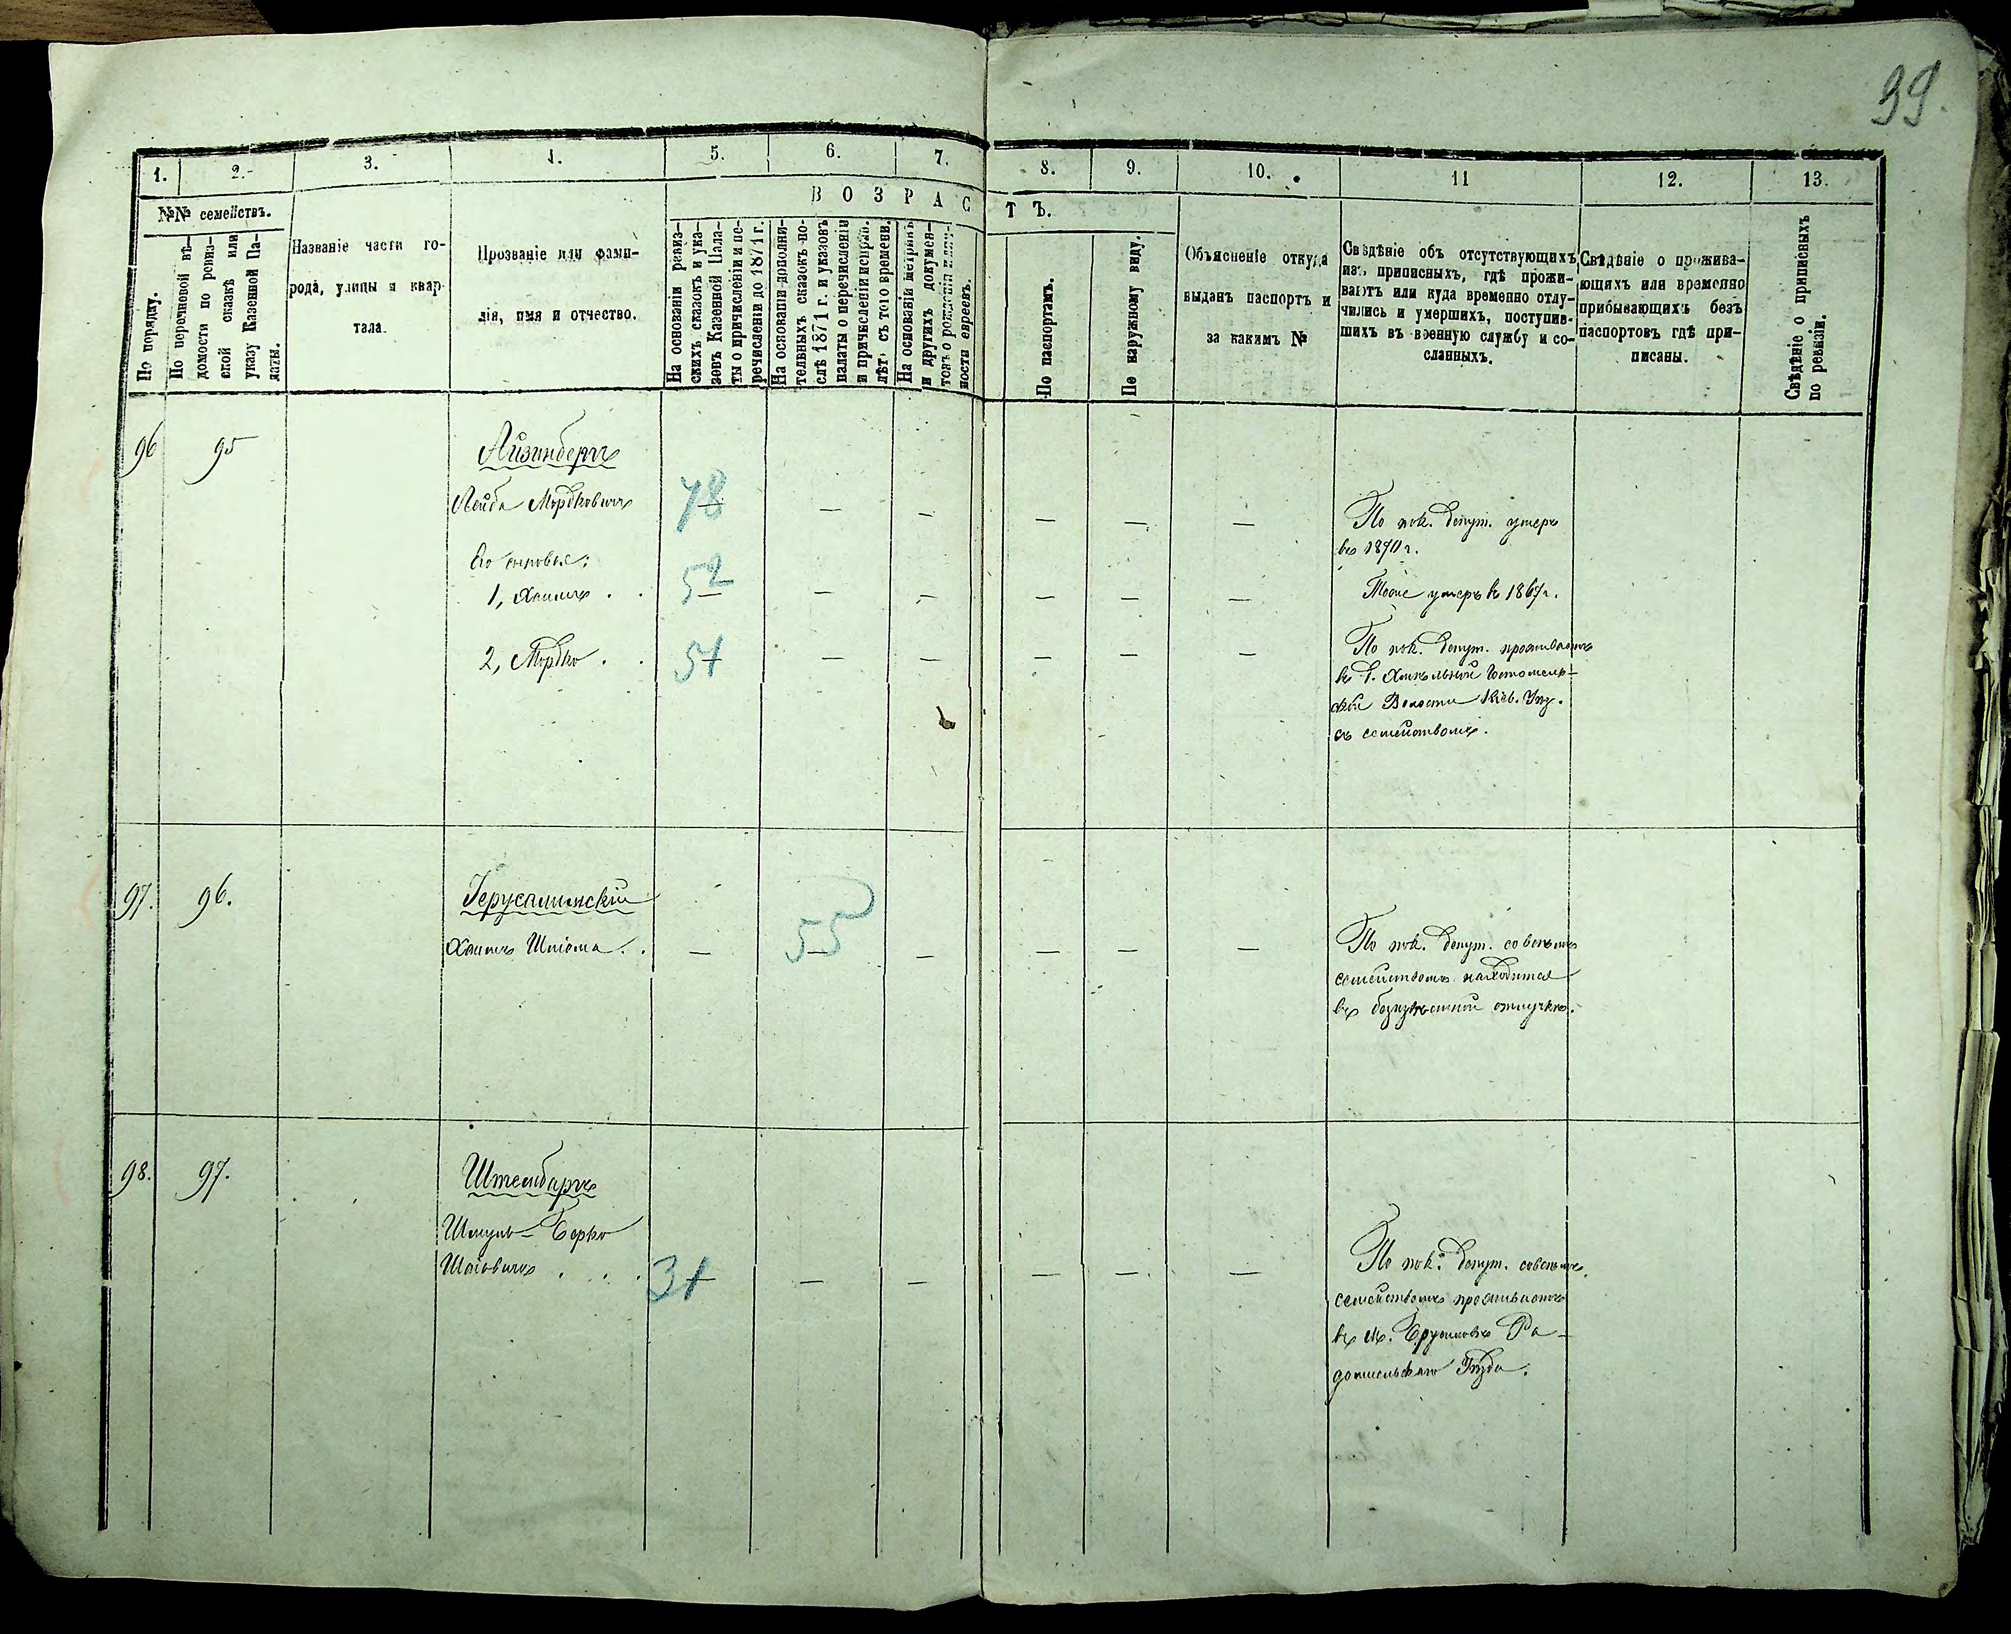 99.
1.
2.
3.
4.
5.
6.
7.
8.
9.
10.
11
12.
13.
№№ семействъ.
По порядку.
По перечневой вѣ-
домости по ревиз-
ской сказкѣ или
указу Казенной Па-
латы.
Названіе части го-
рода, улицы и квар
тала.
Прозваніе или фами-
лія, имя и отчество.
ВОЗРАСТЪ.
На основаніи ревиз-
скихъ сказокъ и ука-
зовъ Казенной Пала-
ты о причисленіи и пе-
речисленіи до 1871 г.
На основаніи дополни-
тельныхъ сказокъ по-
слѣ 1871 г. и указовъ
палаты о перечисленіи
и причисленіи исправ.
лѣтъ съ того времени.
На основаніи метрикъ
и другихъ докумен-
товъ о рожденіи или
ности евреевъ.
По паспортамъ.
По наружному виду.
Объясненіе откуда
выданъ паспортъ и
за какимъ №
Свѣдѣніе объ отсутствующихъ
изъ приписныхъ, гдѣ прожи-
ваютъ или куда временно отлу-
чились и умершихъ, поступив-
шихъ въ военную службу и со-
сланныхъ.
Свѣдѣніе о прожива-
ющихъ или временно
прибывающихъ безъ
паспортовъ гдѣ при-
писаны.
Свѣдѣніе о приписныхъ
по ревизіи.
96 95
Айзинбергъ
Лейба Мордковичъ 78 — — — — —
По пок. депут. умеръ
въ 1870 г.
Его сыновья:
1, Хаимъ . . 52 — — — — —
Тоже умеръ въ 1867 г.
2, Мордко . . 51 — — — — —
По пок. депут. проживаетъ
въ д. Гостомель-
ской Волости Кіев. Уѣз.
съ семействомъ.
97. 96.
Іерусалимскій
Хаимъ Шліома . . — 55 — — — —
По пок. депут. со всѣмъ
семействомъ находится
въ безизвѣстной отлучкѣ.
98. 97.
Штембаргъ
Шмуль-Берко
Шаіовичъ . . . 31 — — — — —
По пок. депут. со всѣмъ
семействомъ проживаетъ
въ м. Брусиловѣ Ра-
домысльскаго Уѣзда.